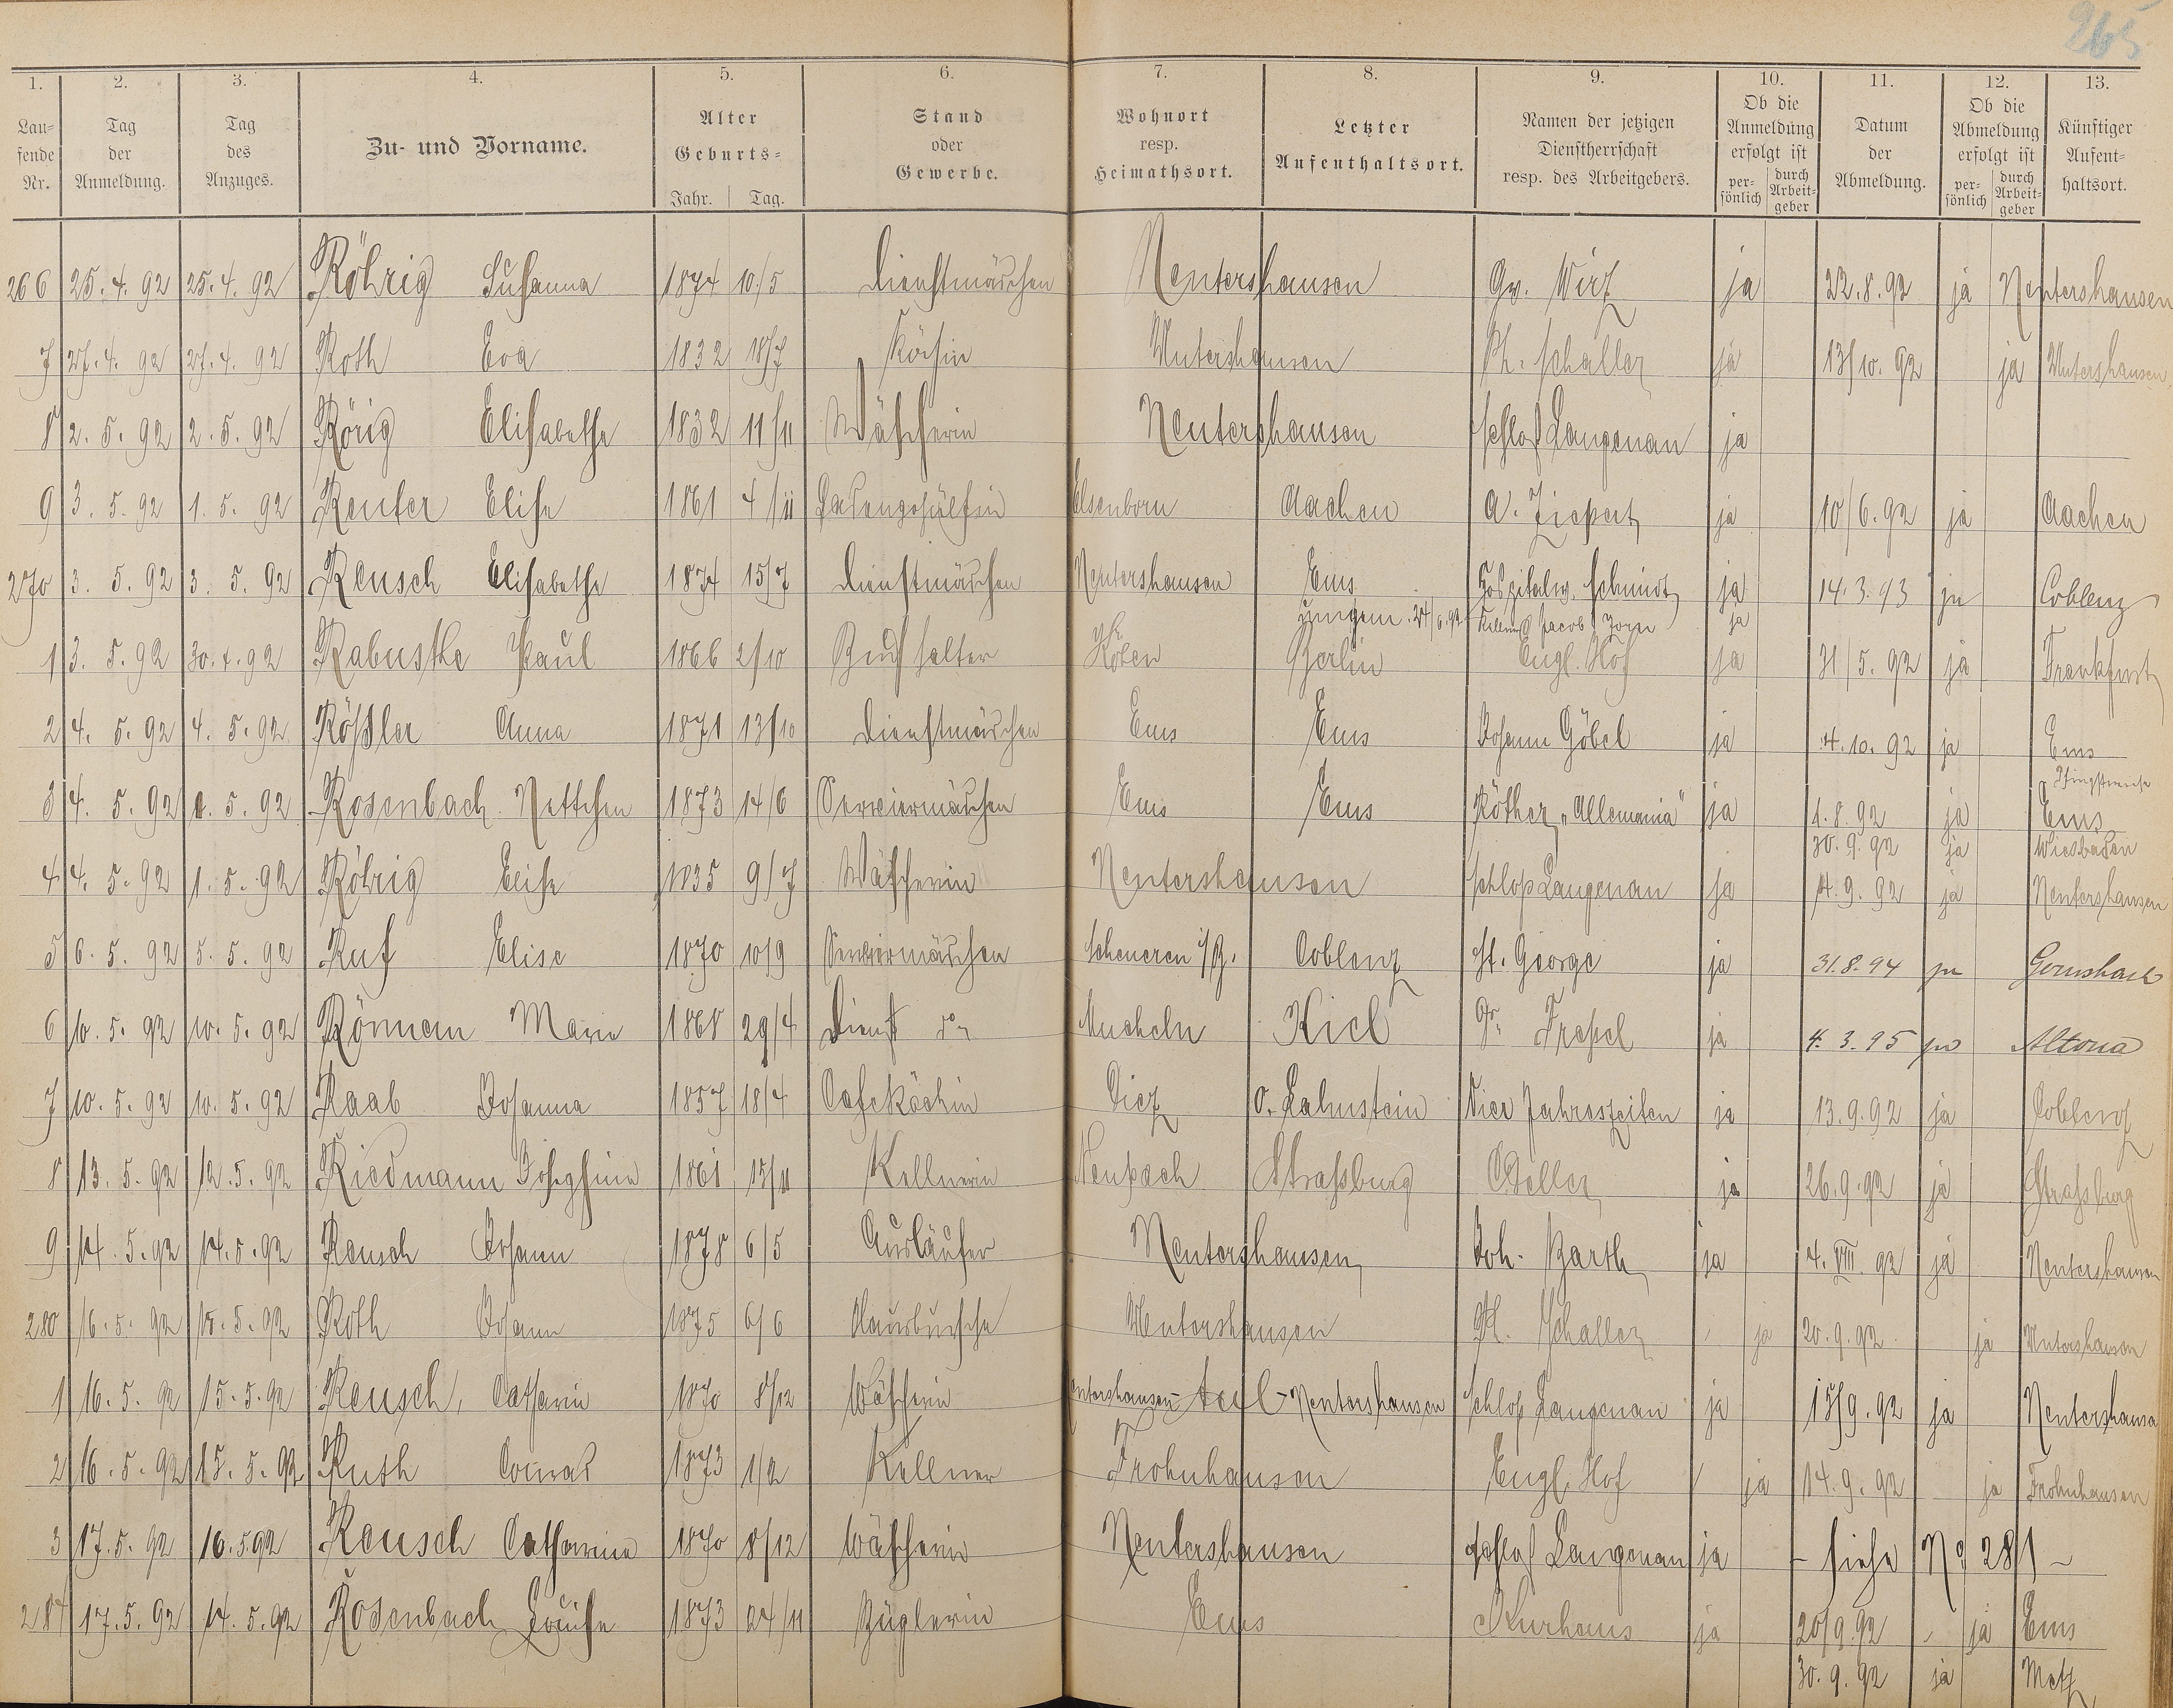 265
1. 2. 3. 4. 5. 6. 7. 8. 9. 10. 11. 12. 13.
Lau-
fende
Nr.
Tag
der
Anmeldung.
Tag
des
Anzuges.
Zu- und Vorname.
Alter
Geburts-
Jahr. Tag.
Stand
oder
Gewerbe.
Wohnort
resp.
Heimathsort.
Letzter
Aufenthaltsort.
Namen der jetzigen
Dienstherrschaft
resp. des Arbeitgebers.
Ob die
Anmeldung
erfolgt ist
per-
sönlich
durch
Arbeit-
geber
Datum
der
Abmeldung.
Ob die
Abmeldung
erfolgt ist
per-
sönlich
durch
Arbeit-
geber
Künftiger
Aufent-
haltsort.
266 25.4.92 25.4.92 Röhrig Susanna 1874 10/5 Dienstmädchen Nentershausen Gv. Wirz ja 22.8.92 ja Nentershausen
7 27.4.92 27.4.92 Roth Eva 1832 18/7 Köchin Untershausen Ph. Schaller ja 13/10.92 ja Untershausen
8 2.5.92 2.5.92 Rörig Elisabethe 1832 11/11 Wäscherin Nentershausen Schloß Langenau ja
9 3.5.92 1.5.92 Reuter Elise 1861 4/11 Ladengehülfin Elsenborn Aachen A. Ziepert ja 10/6.92 ja Aachen
270 3.5.92 3.5.92 Reusch Elisabethe 1874 15/7 Dienstmädchen Nentershausen Ems Hospitalv. Schmidt ja 14.3.93 ja Coblenz
24/6.92 Jacob ja
1 3.5.92 30.4.92 Rabuske Paul 1866 2/10 Buchhalter Berlin Engl. Hof ja 31/5.92 ja Frankfurt
2 4.5.92 4.5.92 Rößler Anna 1871 13/10 Dienstmädchen Ems Ems Johann Göbel ja 4.10.92 ja Ems
3 4.5.92 1.5.92 Rosenbach Nettchen 1873 14/6 Serviermädchen Ems Ems Röther "Allemania" ja 1.8.92 ja Ems
30.9.92 ja Wiesbaden
4 4.5.92 1.5.92 Röhrig Elise 1835 9/7 Wäscherin Nentershausen Schloß Langenau ja 14.9.92 ja Nentershausen
5 6.5.92 5.5.92 Ruf Elise 1870 10/9 Serviermädchen Scheueren i/B. Coblenz St. George ja 31.8.94 ja Gernsbach
6 10.5.92 10.5.92 Römnan Marie 1868 29/4 Dienst do Mucheln Kiel Dr. ja 4.3.95 ja Altona
7 10.5.92 10.5.92 Raab Johanna 1857 18/4 Cafeköchin Diez O. Lahnstein Vier Jahreszeiten ja 13.9.92 ja Coblenz
8 13.5.92 12.5.92 Riedmann Josephine 1861 15/11 Kellnerin Straßburg ja 26.9.92 ja Straßburg
9 14.5.92 14.5.92 Reusch Johann 1878 6/5 Ausläufer Nentershausen Joh. Barth ja 4.VIII.92 ja Nentershausen
280 16.5.92 15.5.92 Roth Johann 1875 6/6 Hausbursche Untershausen Ph. Schaller / ja 20.9.92 ja Untershausen
1 16.5.92 15.5.92 Reusch, Catharin 1870 8/12 Wäscherin Nentershausen Schloß Langenau ja 15/9.92 ja Nentershausen
2 16.5.92 15.5.92 Ruth Conrad 1873 1/2 Kellner Frohnhausen Engl. Hof / ja 14.9.92 ja Frohnhausen
3 17.5.92 16.5.92 Reusch Catharina 1870 8/12 Wäscherin Nentershausen Schloß Langenau ja - siehe No 281 -
284 17.5.92 14.5.92 Rosenbach Louise 1873 24/11 Büglerin Ems Kurhaus ja 20/9.92 - ja Ems
30.9.92 ja Metz